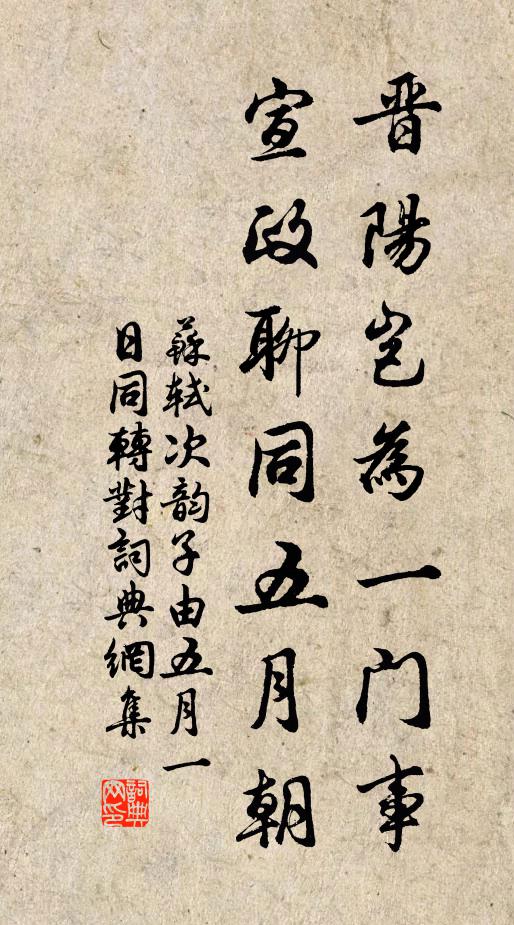 晋陽豈為一門事
宣政聊同五月朝
蘇軾次韵子由五月一
日同轉對詞典網集
詞典
网印